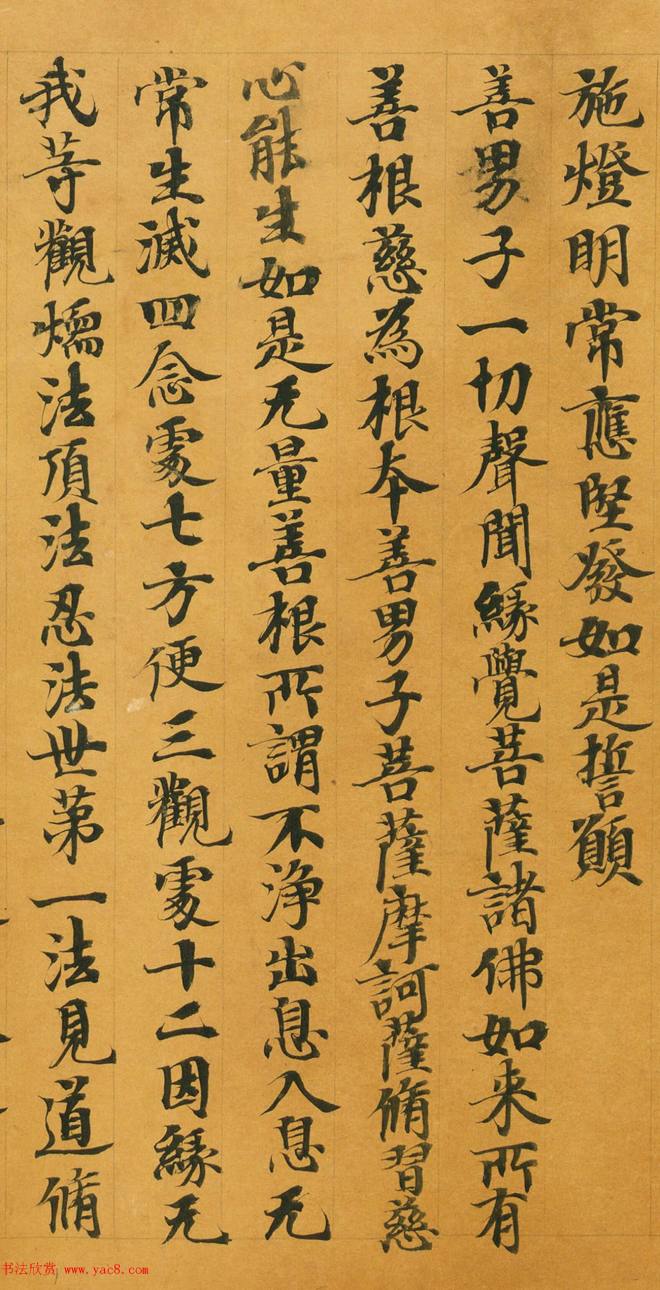 施燈明常應堅發如是誓願
善男子一切聲聞緣覺菩薩諸佛如来所有
善根慈為根本善男子菩薩摩訶薩脩習慈
心能生如是无量善根所謂不浄出息入息无
常生滅四念處七方便三觀處十二因緣无
我等觀煗法頂法忍法世第一法見道脩
书法欣赏 www.yac8.com